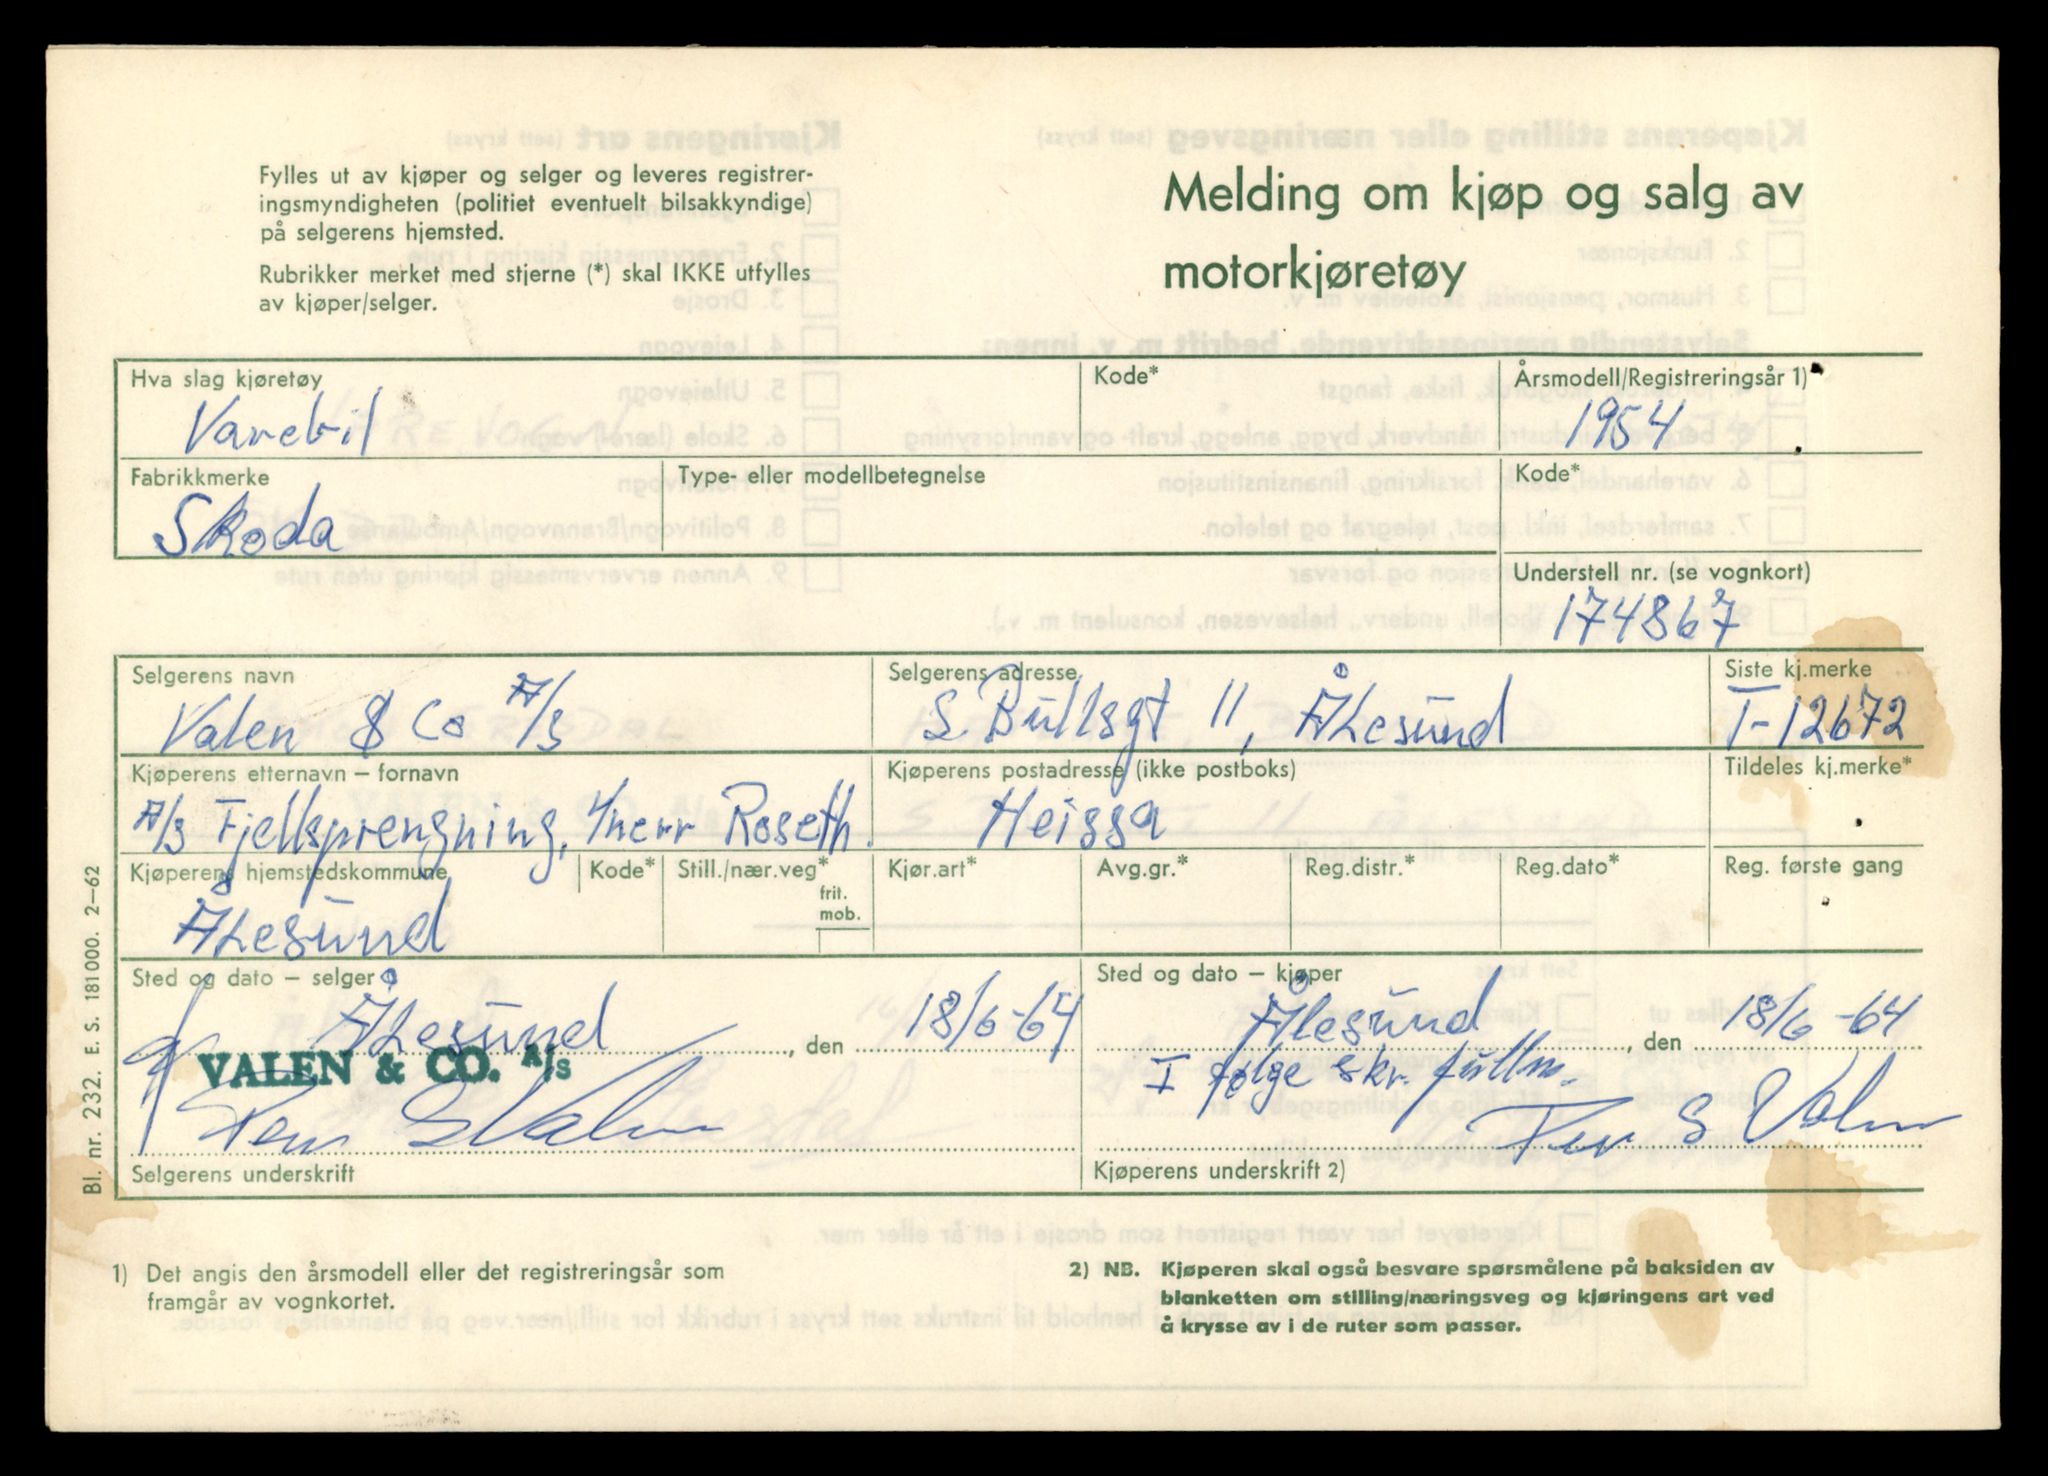 Fylles ut av kjøper og selger og leveres registrer-
ingsmyndigheten (politiet eventuelt bilsakkyndige)
på selgerens hjemsted.
Rubrikker merket med stjerne (*) skal IKKE utfylles
av kjøper/selger.
Melding om kjøp og salg av
motorkjøretøy
Hva slag kjøretøy
Varebil
Kode*
Årsmodell/Registreringsår 1)
1954
Fabrikkmerke
Skoda
Type- eller modellbetegnelse
Kode*
Understell nr. (se vognkort)
174867
Selgerens navn
Valen & Co A/S
Selgerens adresse
S. Bullsgt 11, Ålesund
Siste kj.merke
T-12672
Kjøperens etternavn – fornavn
A/S Fjellsprengning, v/herr Roseth.
Kjøperens postadresse (ikke postboks)
Heissa
Tildeles kj.merke*
Kjøperens hjemstedskommune
Ålesund
Kode*
Still./nær.veg*
frit.
mob.
Kjør.art*
Avg.gr.*
Reg.distr.*
Reg.dato*
Reg. første gang
Sted og dato – selger
Ålesund, den 18/6-64
VALEN & CO. A/S
Selgerens underskrift
Sted og dato – kjøper
Ålesund, den 18/6-64
I følge skr. fullm.
Per S Valen
Kjøperens underskrift 2)
Bl. nr. 232. E. S. 181000. 2–62
1) Det angis den årsmodell eller det registreringsår som
framgår av vognkortet.
2) NB. Kjøperen skal også besvare spørsmålene på baksiden av
blanketten om stilling/næringsveg og kjøringens art ved
å krysse av i de ruter som passer.